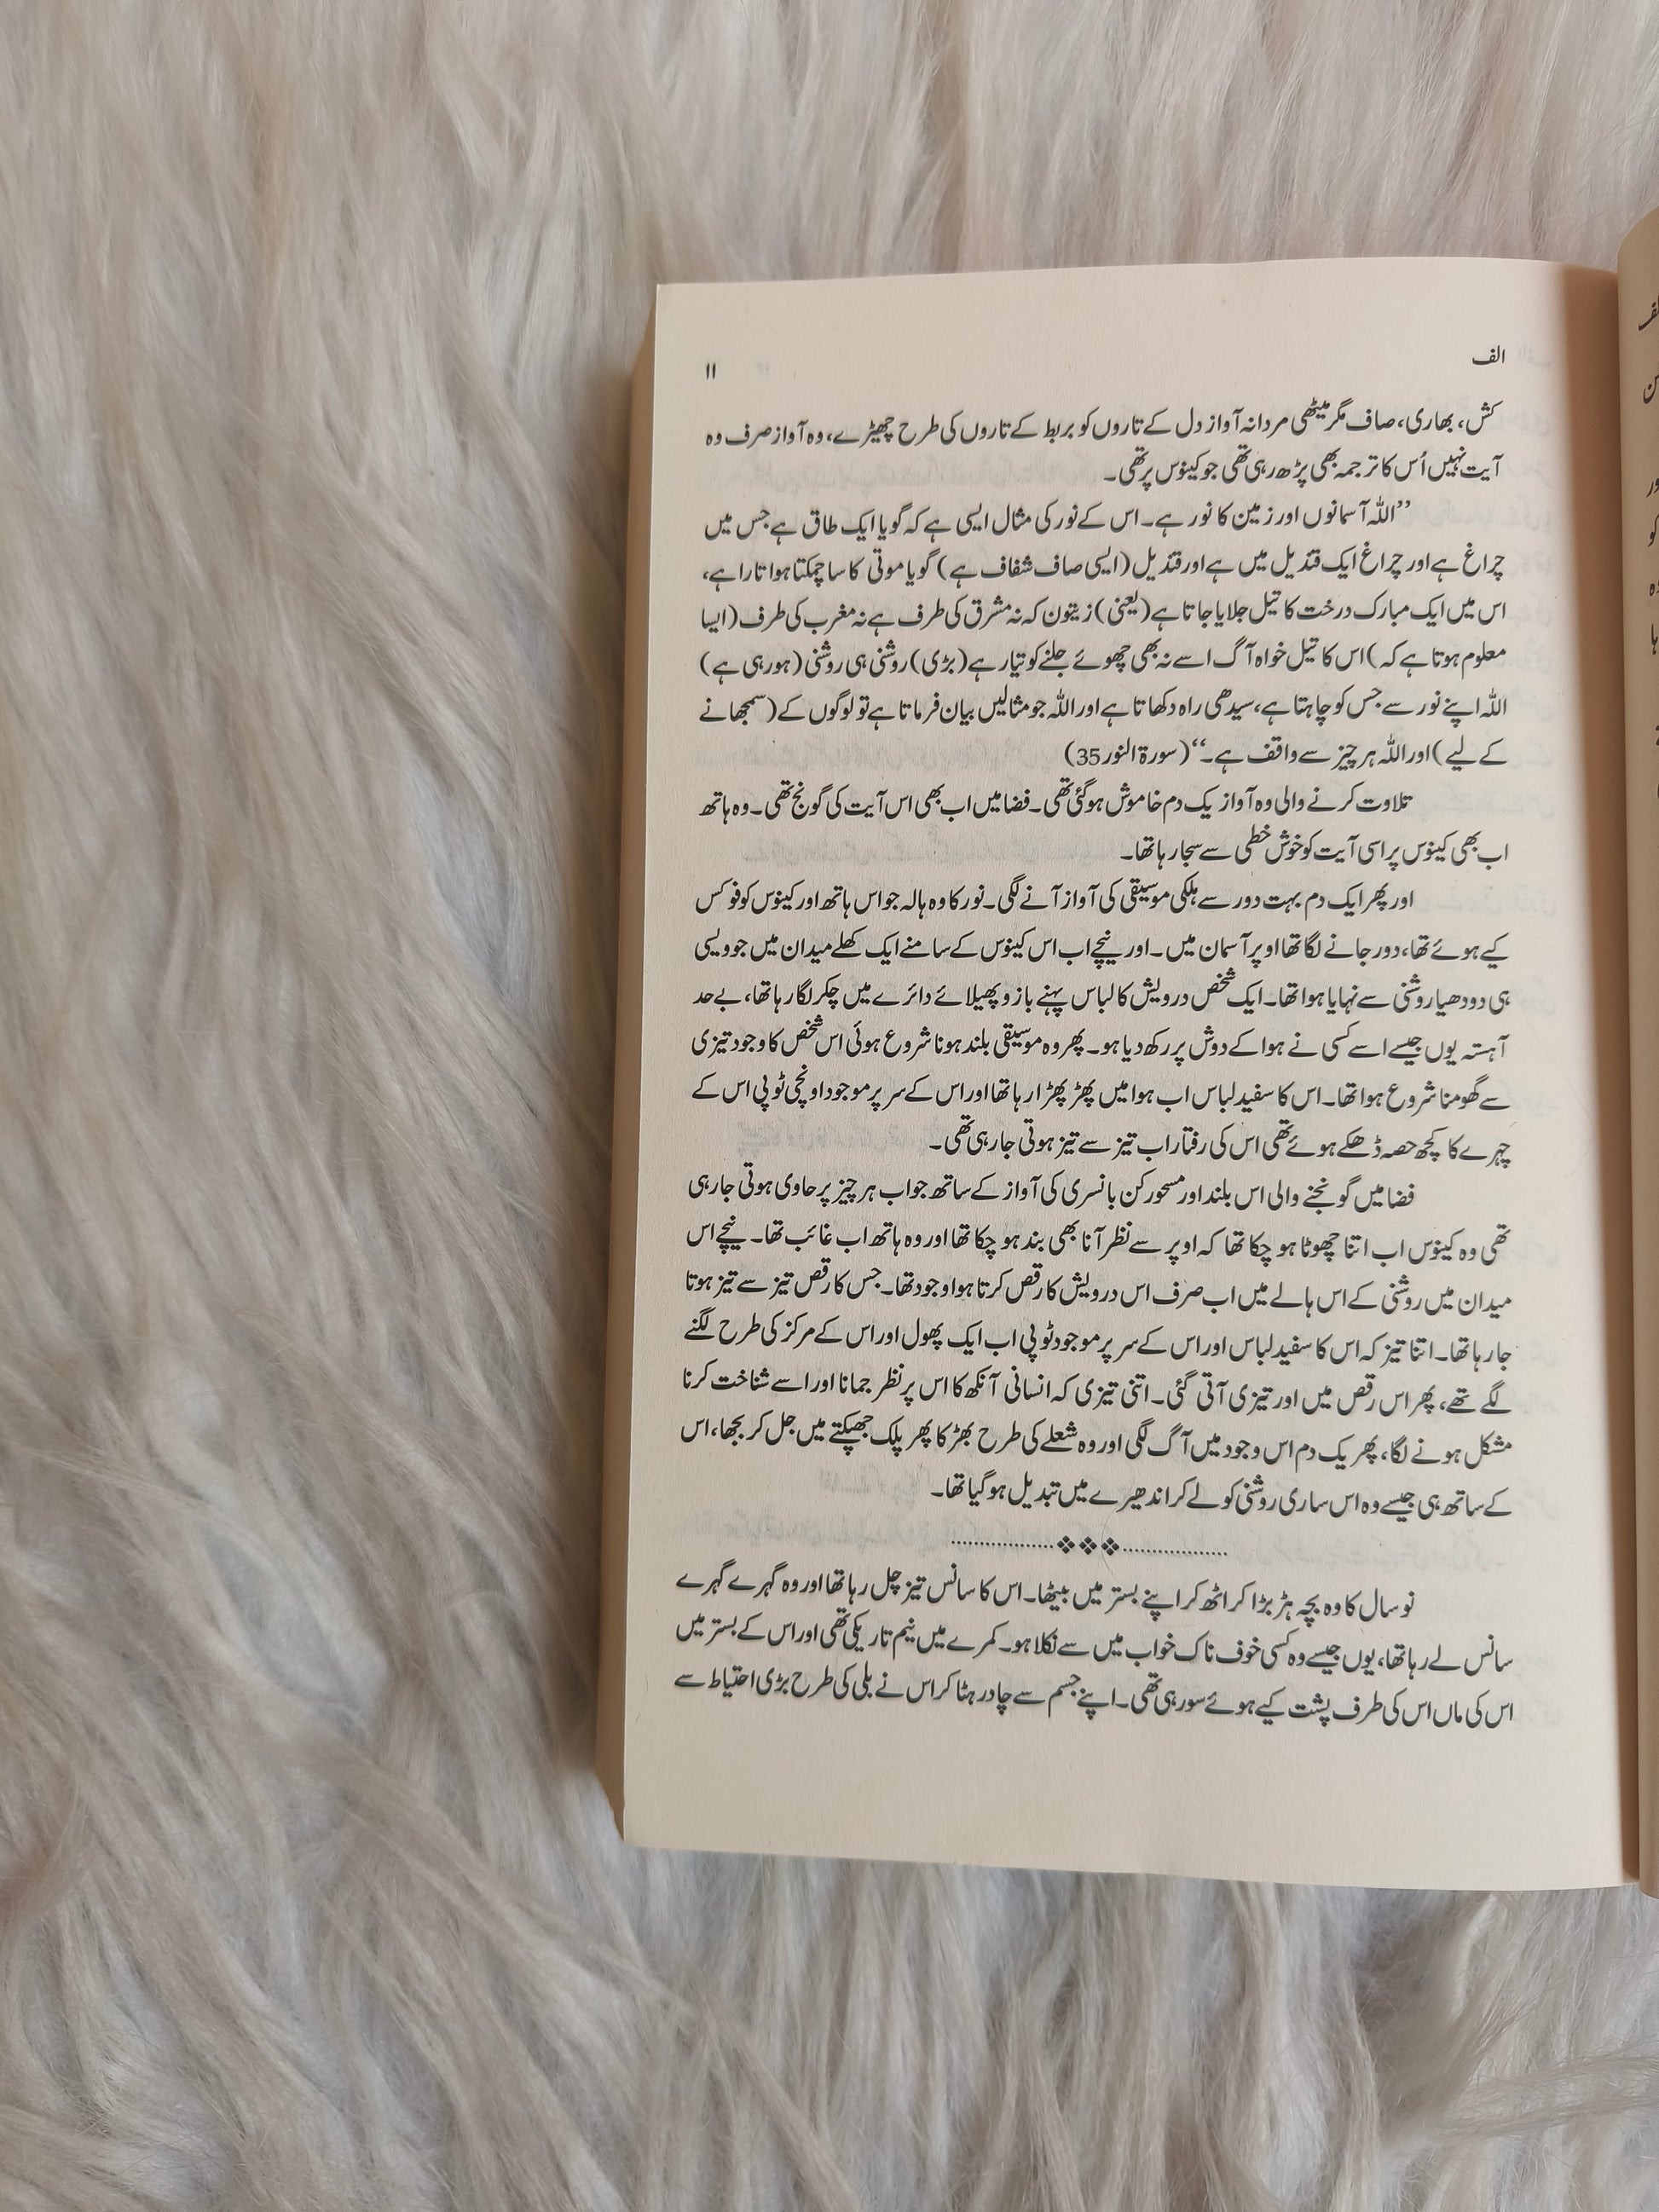 الف
۱۱
کش، بھاری، صاف مگر میٹھی مردانہ آواز دل کے تاروں کو بربط کے تاروں کی طرح چھیڑے، وہ آواز صرف وہ
آیت نہیں اُس کا ترجمہ بھی پڑھ رہی تھی جو کینوس پر تھی۔
”اللہ آسمانوں اور زمین کا نور ہے۔ اس کے نور کی مثال ایسی ہے کہ گویا ایک طاق ہے جس میں
چراغ ہے اور چراغ ایک قندیل میں ہے اور قندیل (ایسی صاف شفاف ہے) گویا موتی کا سا چمکتا ہوا تارا ہے،
اس میں ایک مبارک درخت کا تیل جلایا جاتا ہے (یعنی) زیتون کہ نہ مشرق کی طرف ہے نہ مغرب کی طرف (ایسا
معلوم ہوتا ہے کہ) اس کا تیل خواہ آگ اسے نہ بھی چھوئے جلنے کو تیار ہے (بڑی) روشنی ہی روشنی (ہو رہی ہے)
اللہ اپنے نور سے جس کو چاہتا ہے، سیدھی راہ دکھاتا ہے اور اللہ جو مثالیں بیان فرماتا ہے تو لوگوں کے (سمجھانے
کے لیے) اور اللہ ہر چیز سے واقف ہے۔“ (سورۃ النور 35)
تلاوت کرنے والی وہ آواز یک دم خاموش ہوگئی تھی۔ فضا میں اب بھی اس آیت کی گونج تھی۔ وہ ہاتھ
اب بھی کینوس پر اسی آیت کو خوش خطی سے سجا رہا تھا۔
اور پھر ایک دم بہت دور سے ہلکی موسیقی کی آواز آنے لگی۔ نور کا وہ ہالہ جو اس ہاتھ اور کینوس کو فوکس
کیے ہوئے تھا، دور جانے لگا تھا اوپر آسمان میں۔ اور نیچے اب اس کینوس کے سامنے ایک کھلے میدان میں جو ویسی
ہی دودھیا روشنی سے نہایا ہوا تھا۔ ایک شخص درویش کا لباس پہنے بازو پھیلائے دائرے میں چکر لگا رہا تھا، بے حد
آہستہ یوں جیسے اسے کسی نے ہوا کے دوش پر رکھ دیا ہو۔ پھر وہ موسیقی بلند ہونا شروع ہوئی اس شخص کا وجود تیزی
سے گھومنا شروع ہوا تھا۔ اس کا سفید لباس اب ہوا میں پھڑ پھڑا رہا تھا اور اس کے سر پر موجود اونچی ٹوپی اس کے
چہرے کا کچھ حصہ ڈھکے ہوئے تھی اس کی رفتار اب تیز سے تیز ہوتی جا رہی تھی۔
فضا میں گونجنے والی اس بلند اور مسحور کن بانسری کی آواز کے ساتھ جو اب ہر چیز پر حاوی ہوتی جا رہی
تھی وہ کینوس اب اتنا چھوٹا ہو چکا تھا کہ اوپر سے نظر آنا بھی بند ہو چکا تھا اور وہ ہاتھ اب غائب تھا۔ نیچے اس
میدان میں روشنی کے اس ہالے میں اب صرف اس درویش کا رقص کرتا ہوا وجود تھا۔ جس کا رقص تیز سے تیز ہوتا
جا رہا تھا۔ اتنا تیز کہ اس کا سفید لباس اور اس کے سر پر موجود ٹوپی اب ایک پھول اور اس کے مرکز کی طرح لگنے
لگے تھے، پھر اس رقص میں اور تیزی آتی گئی۔ اتنی تیزی کہ انسانی آنکھ کا اس پر نظر جمانا اور اسے شناخت کرنا
مشکل ہونے لگا، پھر یک دم اس وجود میں آگ لگی اور وہ شعلے کی طرح بھڑکا پھر پلک جھپکتے میں جل کر بجھا، اس
کے ساتھ ہی جیسے وہ اس ساری روشنی کو لے کر اندھیرے میں تبدیل ہو گیا تھا۔
................❖❖❖................
نو سال کا وہ بچہ ہڑبڑا کر اٹھ کر اپنے بستر میں بیٹھا۔ اس کا سانس تیز چل رہا تھا اور وہ گہرے گہرے
سانس لے رہا تھا، یوں جیسے وہ کسی خوف ناک خواب میں سے نکلا ہو۔ کمرے میں نیم تاریکی تھی اور اس کے بستر میں
اس کی ماں اس کی طرف پشت کیے ہوئے سو رہی تھی۔ اپنے جسم سے چادر ہٹا کر اس نے بلی کی طرح بڑی احتیاط سے